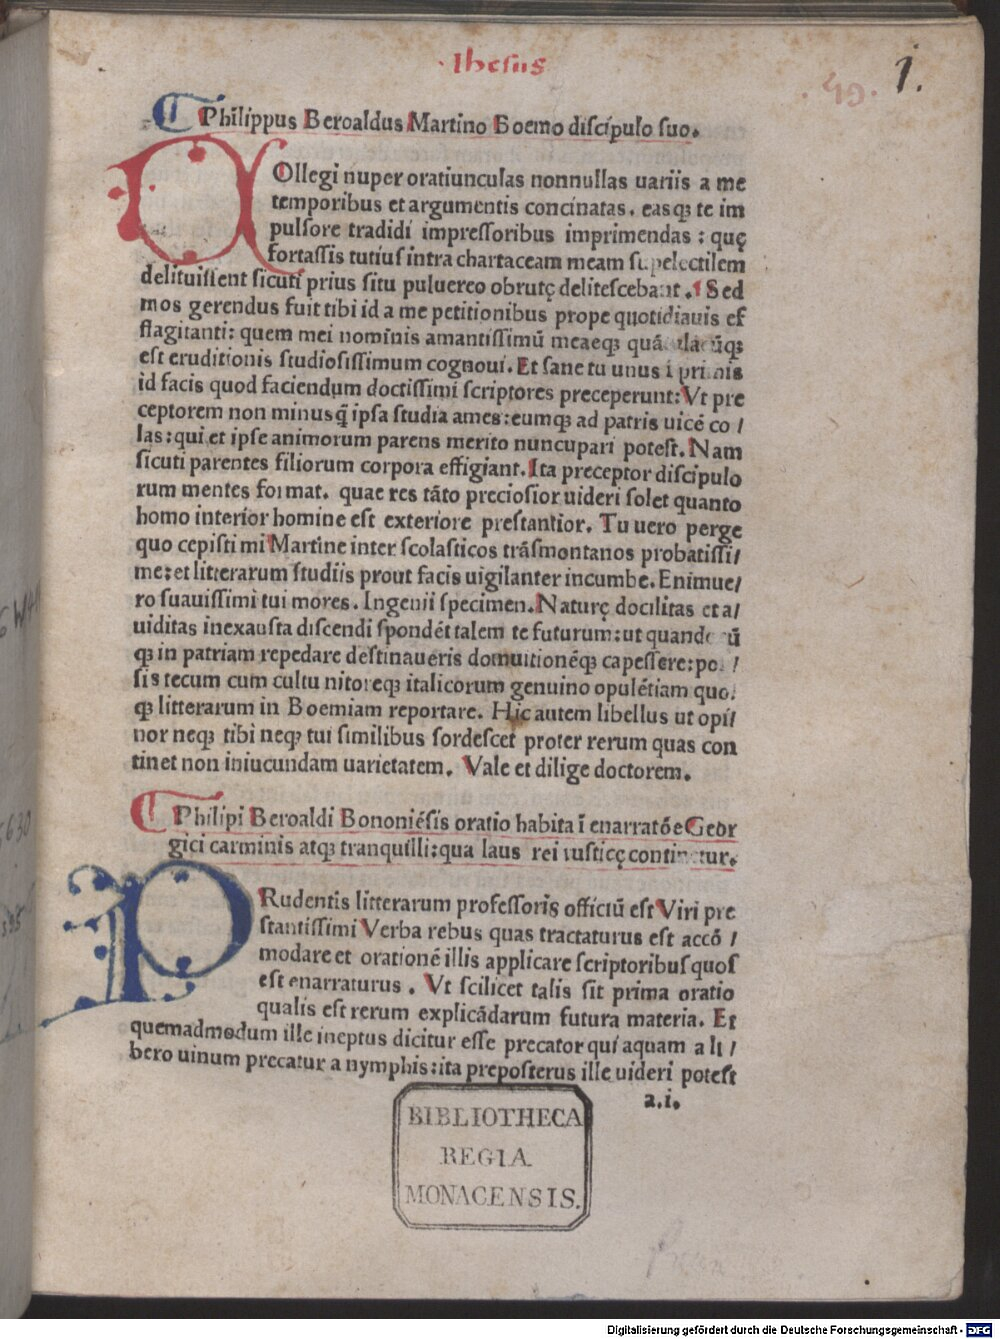 Ihesus
.49. 1.
Philippus Beroaldus Martino Boemo discipulo suo.
COllegi nuper oratiunculas nonnullas uariis a me
temporibus et argumentis concinatas. easqꝫ te im
pulsore tradidi impressoribus imprimendas : quę
fortassis tutius intra chartaceam meam supelectilem
delituissent sicuti prius situ puluereo obrutę delitescebant. Sed
mos gerendus fuit tibi id a me petitionibus prope quotidianis ef
flagitanti: quem mei nominis amantissimū meaeqꝫ
est eruditionis studiosissimum cognoui. Et sane tu unus ī primis
id facis quod faciendum doctissimi scriptores preceperunt: Vt pre
ceptorem non minus q̄ ipsa studia ames: eumqꝫ ad patris uicē co /
las: qui et ipse animorum parens merito nuncupari potest. Nam
sicuti parentes filiorum corpora effigiant. Ita preceptor discipulo
rum mentes format. quae res tāto preciosior uideri solet quanto
homo interior homine est exteriore prestantior. Tu uero perge
quo cepisti mi Martine inter scolasticos trāsmontanos probatissi/
me: et litterarum studiis prout facis uigilanter incumbe. Enimue/
ro suauissimi tui mores. Ingenii specimen. Naturę docilitas et a/
uiditas inexausta discendi spondēt talem te futurum: ut quandocū
qꝫ in patriam repedare destinaueris domuitionēqꝫ capessere: pos /
sis tecum cum cultu nitoreqꝫ italicorum genuino opulētiam quoqꝫ
qꝫ litterarum in Boemiam reportare. Hic autem libellus ut opi/
nor neqꝫ tibi neqꝫ tui similibus sordescet proter rerum quas con
tinet non iniucundam uarietatem. Vale et dilige doctorem.
Philipi Beroaldi Bononiēsis oratio habita ī enarratōe Geor
gici carminis atqꝫ tranquilli: qua laus rei rusticę continetur.
PRudentis litterarum professoris officiū est Viri pre
stantissimi Verba rebus quas tractaturus est accō /
modare et orationē illis applicare scriptoribus quos
est enarraturus . Vt scilicet talis sit prima oratio
qualis est rerum explicādarum futura materia. Et
quemadmodum ille ineptus dicitur esse precator qui aquam a li /
bero uinum precatur a nymphis: ita preposterus ille uideri potest
a.i.
BIBLIOTHECA
REGIA
MONACENSIS.
Digitalisierung gefördert durch die Deutsche Forschungsgemeinschaft - DFG